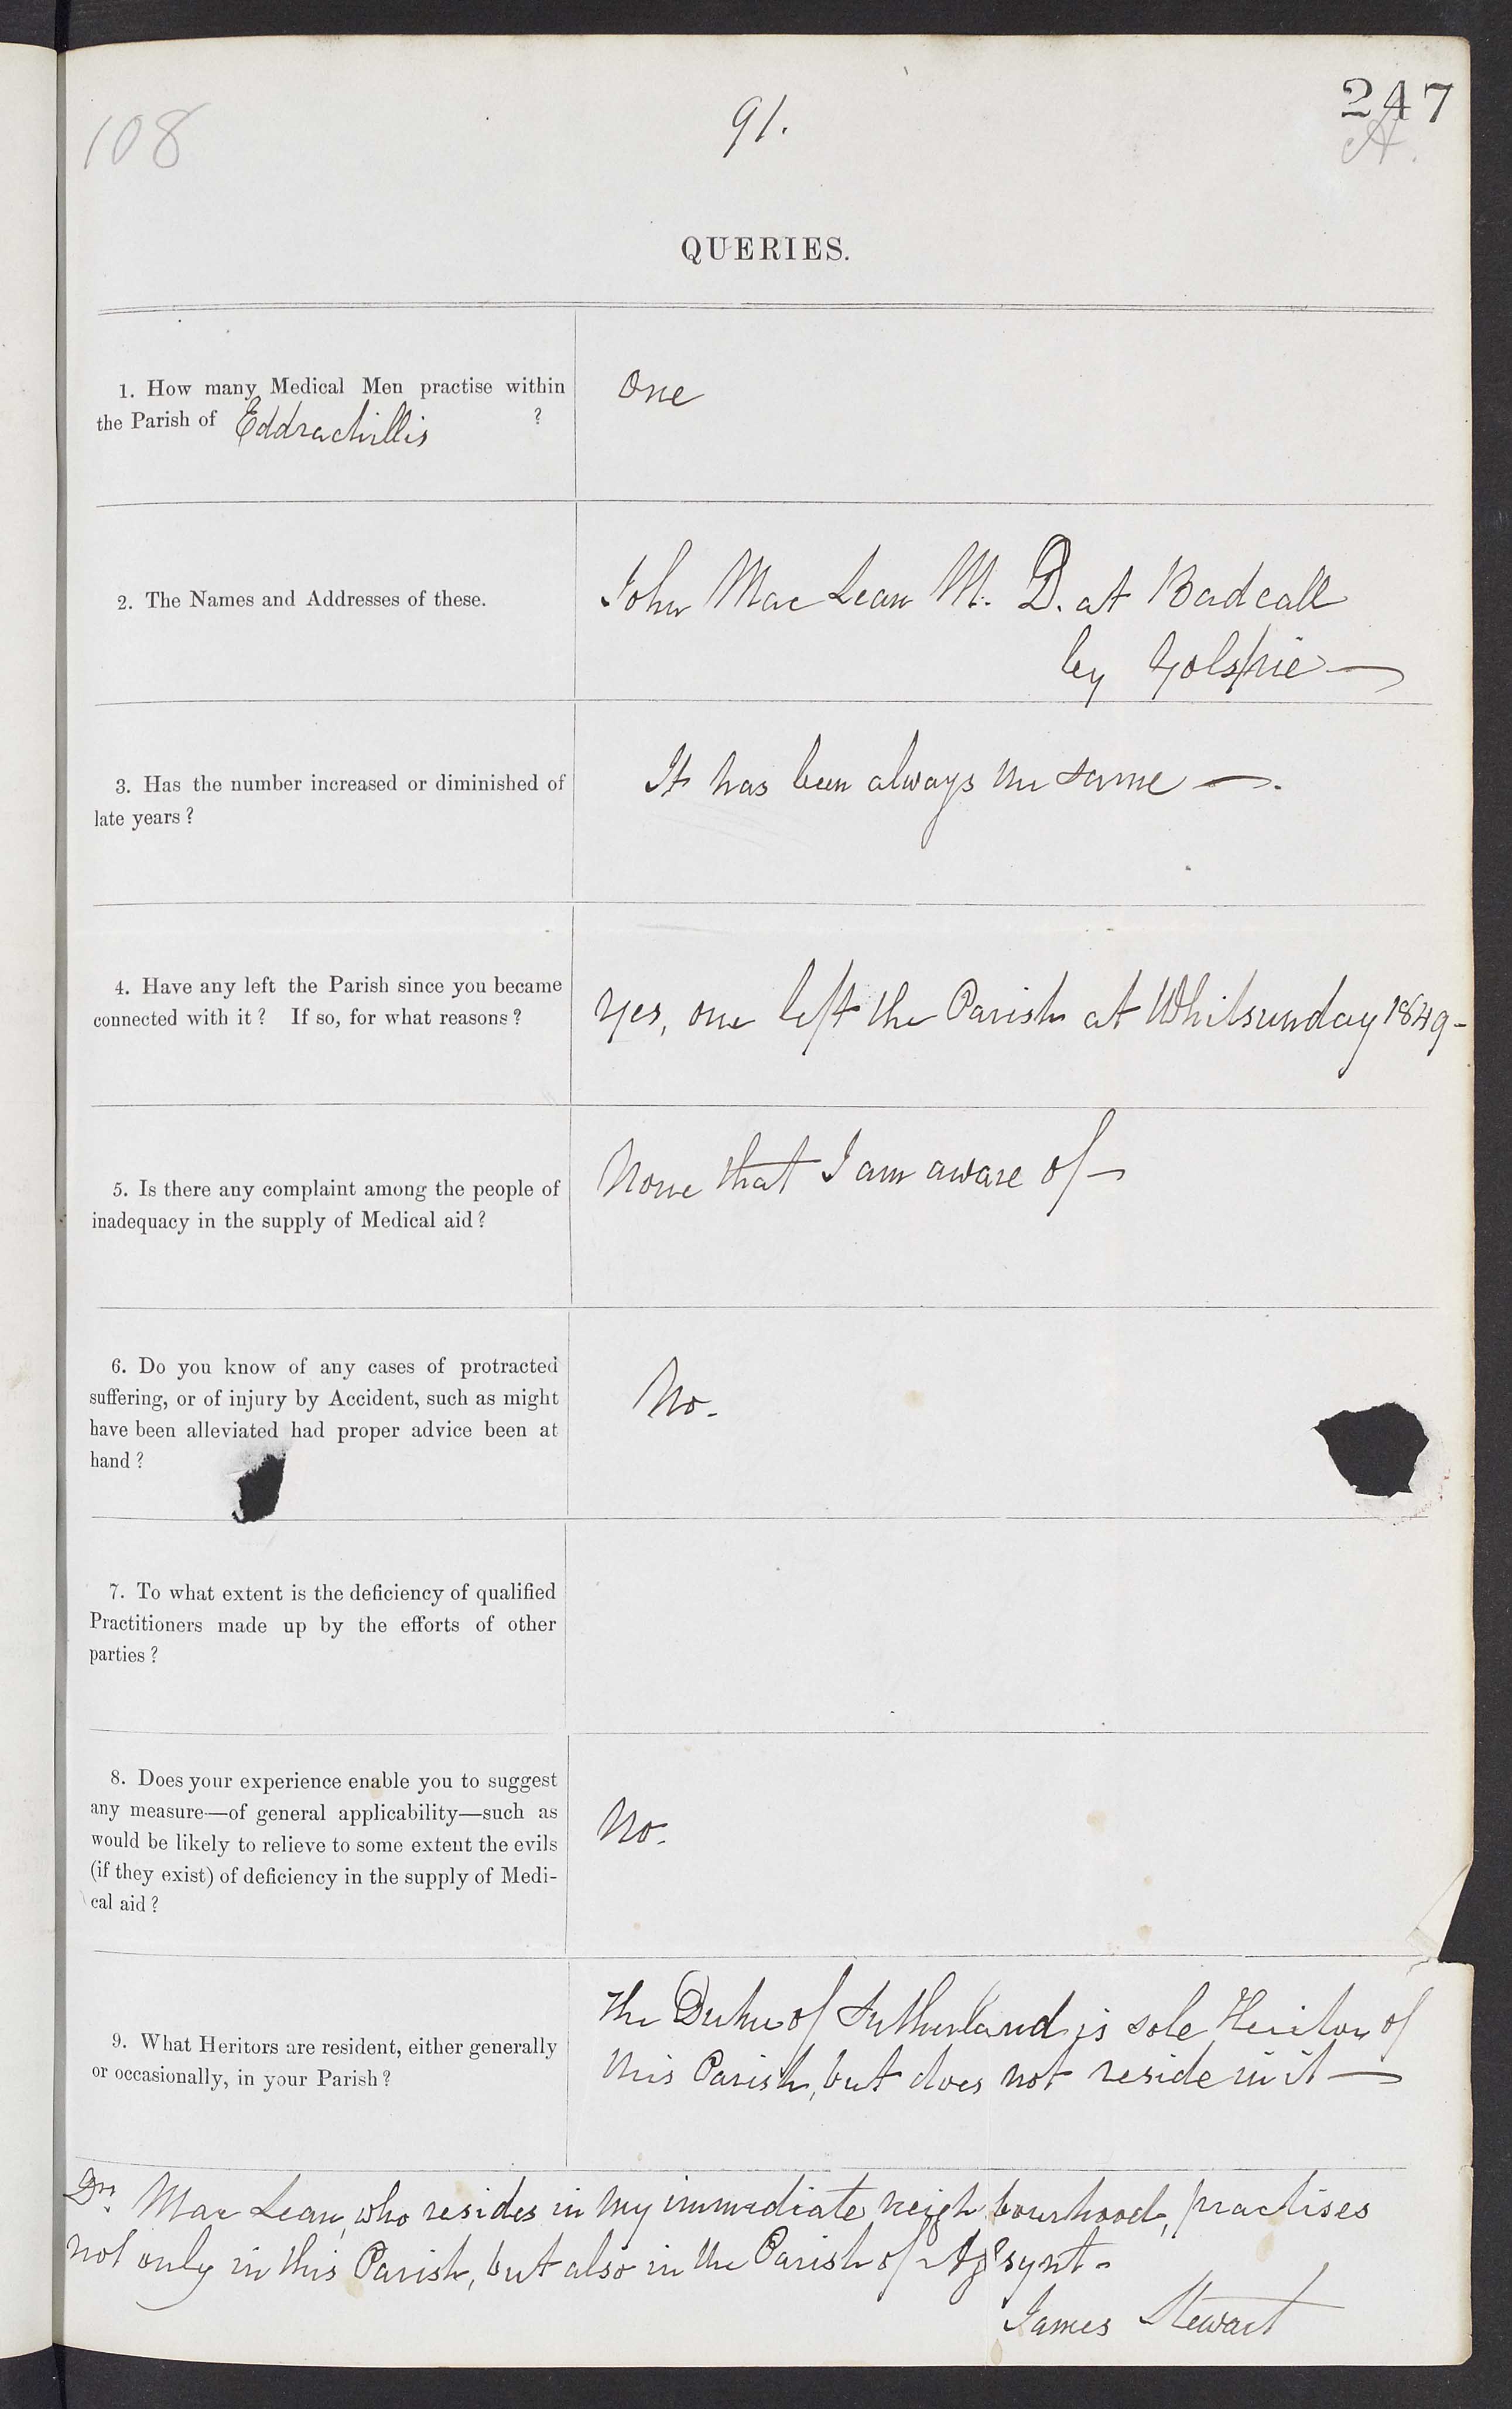 108
91.
247
A.
QUERIES.
1. How many Medical Men practise within
the Parish of Eddrachillis ?
One
2. The Names and Addresses of these.
John Mac Lean M. D. at Badcall
by Golspie —
3. Has the number increased or diminished of
late years?
It has been always the same —.
4. Have any left the Parish since you became
connected with it? If so, for what reasons?
Yes, one left the Parish at Whitsunday 1849-
5. Is there any complaint among the people of
inadequacy in the supply of Medical aid?
None that I am aware of —
6. Do you know of any cases of protracted
suffering, or of injury by Accident, such as might
have been alleviated had proper advice been at
hand?
No.
7. To what extent is the deficiency of qualified
Practitioners made up by the efforts of other
parties?
8. Does your experience enable you to suggest
any measure—of general applicability—such as
would be likely to relieve to some extent the evils
(if they exist) of deficiency in the supply of Medi-
cal aid?
No.
9. What Heritors are resident, either generally
or occasionally, in your Parish?
The Duke of Sutherland is sole Heritor of
this Parish, but does not reside in it —
Dr. Mac Lean, who resides in my immediate neighbourhood, practises
not only in this Parish, but also in the Parish of Assynt.
James Stewart